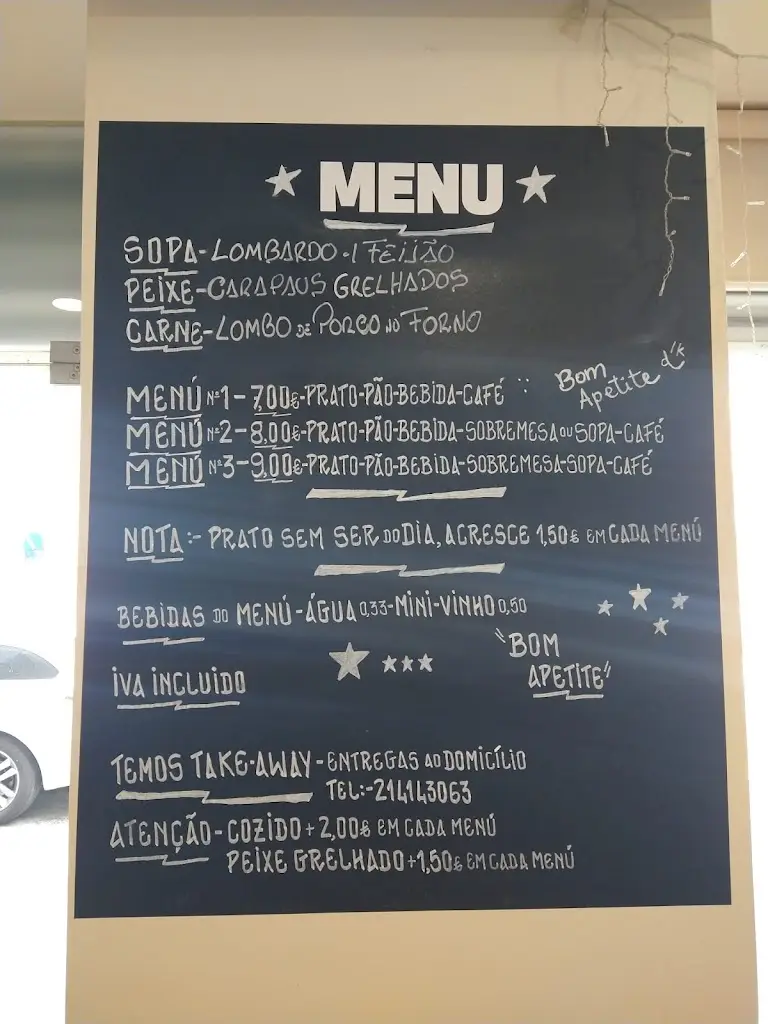 MENU
SOPA-LOMBARDO-I FEIJÃO
PEIXE-CARAPAUS GRELHADOS
CARNE-LOMBO DE PORCO NO FORNO
Bom
Apetite
MENÚ Nº1-7,00€-PRATO-PÃO-BEBIDA-CAFÉ
MENÚ Nº2-8,00€-PRATO-PÃO-BEBIDA-SOBREMESA OU SOPA-CAFÉ
MENÚ Nº3-9,00€-PRATO-PÃO-BEBIDA-SOBREMESA-SOPA-CAFÉ
NOTA:- PRATO SEM SER DO DIA, ACRESCE 1,50€ EM CADA MENÚ
BEBIDAS DO MENÚ-ÁGUA 0,33-MINI-VINHO 0,50
"BOM
APETITE"
IVA INCLUIDO
TEMOS TAKE-AWAY-ENTREGAS AO DOMICÍLIO
TEL:-214143063
ATENÇÃO-COZIDO+2,00€ EM CADA MENÚ
PEIXE GRELHADO+1,50€ EM CADA MENÚ